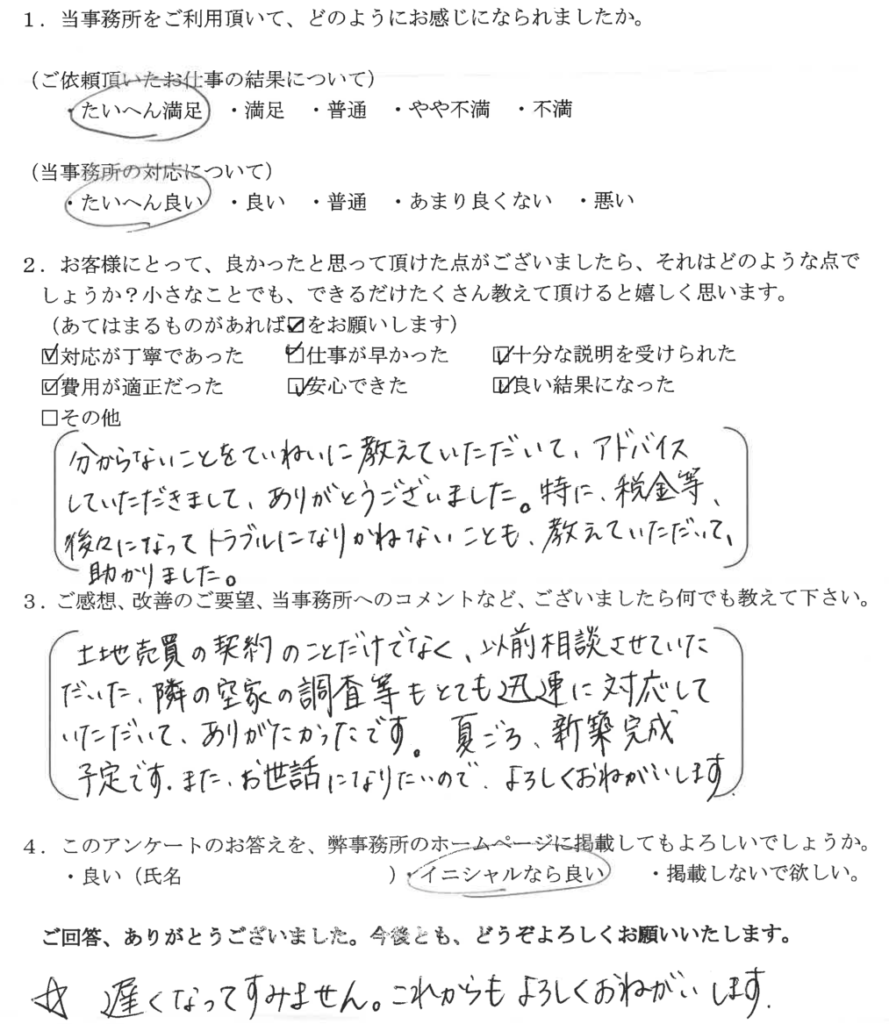 １．当事務所をご利用頂いて、どのようにお感じになられましたか。
（ご依頼頂いたお仕事の結果について）
・たいへん満足　・満足　・普通　・やや不満　・不満
（当事務所の対応について）
・たいへん良い　・良い　・普通　・あまり良くない　・悪い
２．お客様にとって、良かったと思って頂けた点がございましたら、それはどのような点で
しょうか？小さなことでも、できるだけたくさん教えて頂けると嬉しく思います。
（あてはまるものがあれば☑をお願いします）
☑対応が丁寧であった　☑仕事が早かった　☑十分な説明を受けられた
☑費用が適正だった　☑安心できた　☑良い結果になった
□その他
分からないことをていねいに教えていただいて、アドバイス
していただきまして、ありがとうございました。特に、税金等、
後々になってトラブルになりかねないことも、教えていただいて、
助かりました。
３．ご感想、改善のご要望、当事務所へのコメントなど、ございましたら何でも教えて下さい。
土地売買の契約のことだけでなく、以前相談させていた
だいた、隣の空家の調査等もとても迅速に対応して
いただいて、ありがたかったです。夏ごろ、新築完成
予定です。また、お世話になりたいので、よろしくおねがいします。
４．このアンケートのお答えを、弊事務所のホームページに掲載してもよろしいでしょうか。
・良い（氏名　　　　　　　　　）・イニシャルなら良い　・掲載しないで欲しい。
ご回答、ありがとうございました。今後とも、どうぞよろしくお願いいたします。
☆ 遅くなってすみません。これからもよろしくおねがいします。